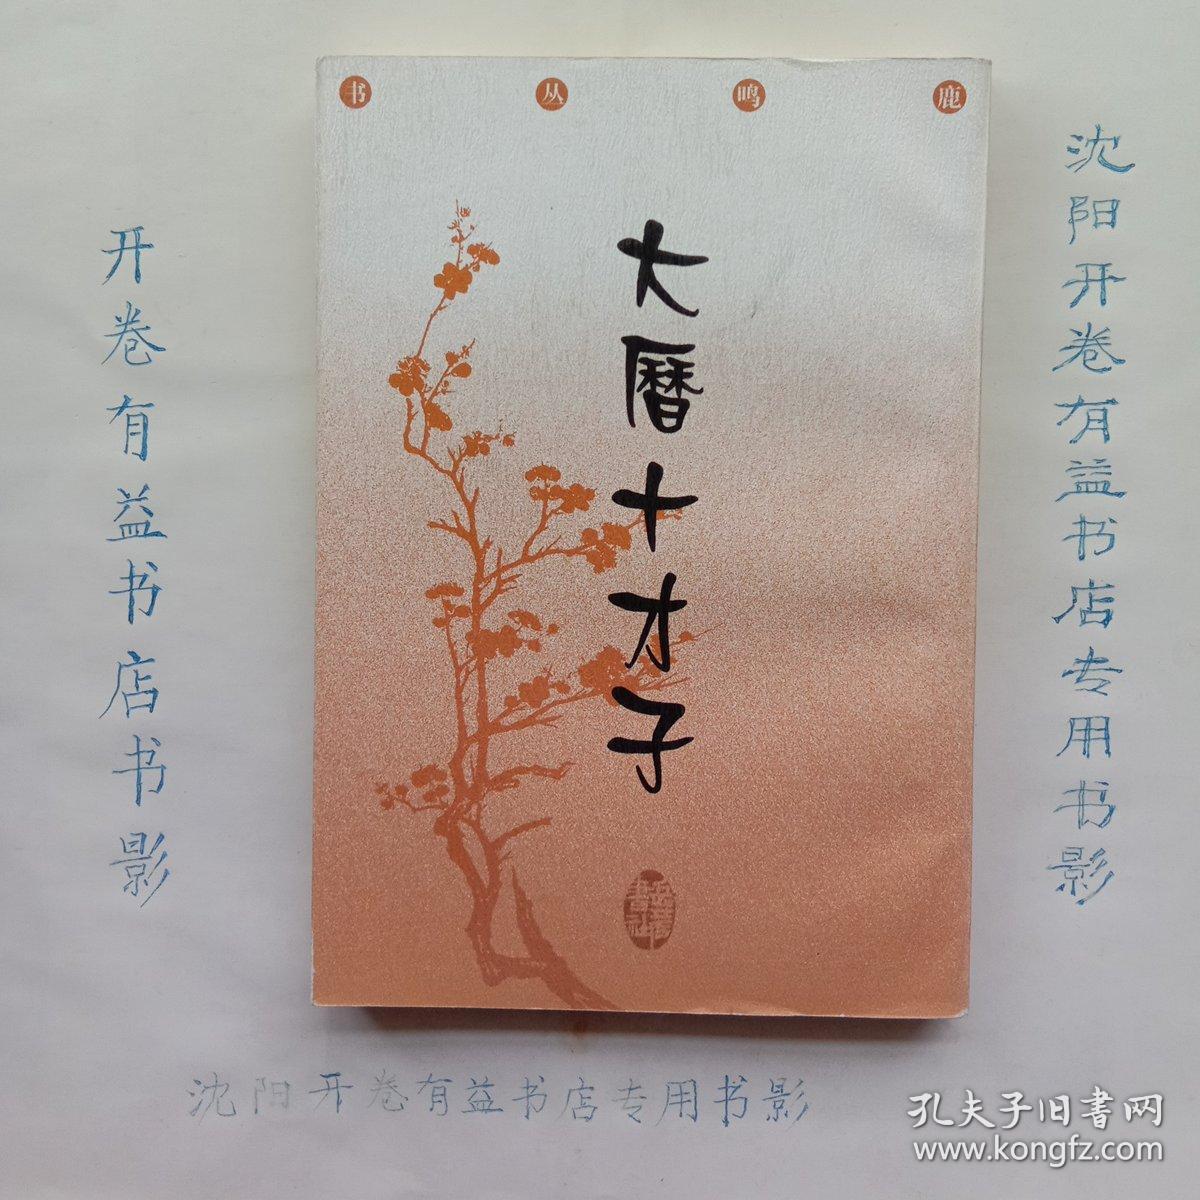 书丛鸣鹿
大曆十才子
岳麓書社
沈阳开卷有益书店专用书影
开卷有益书店书影
沈阳开卷有益书店专用书影
孔夫子旧書网
www.kongfz.com